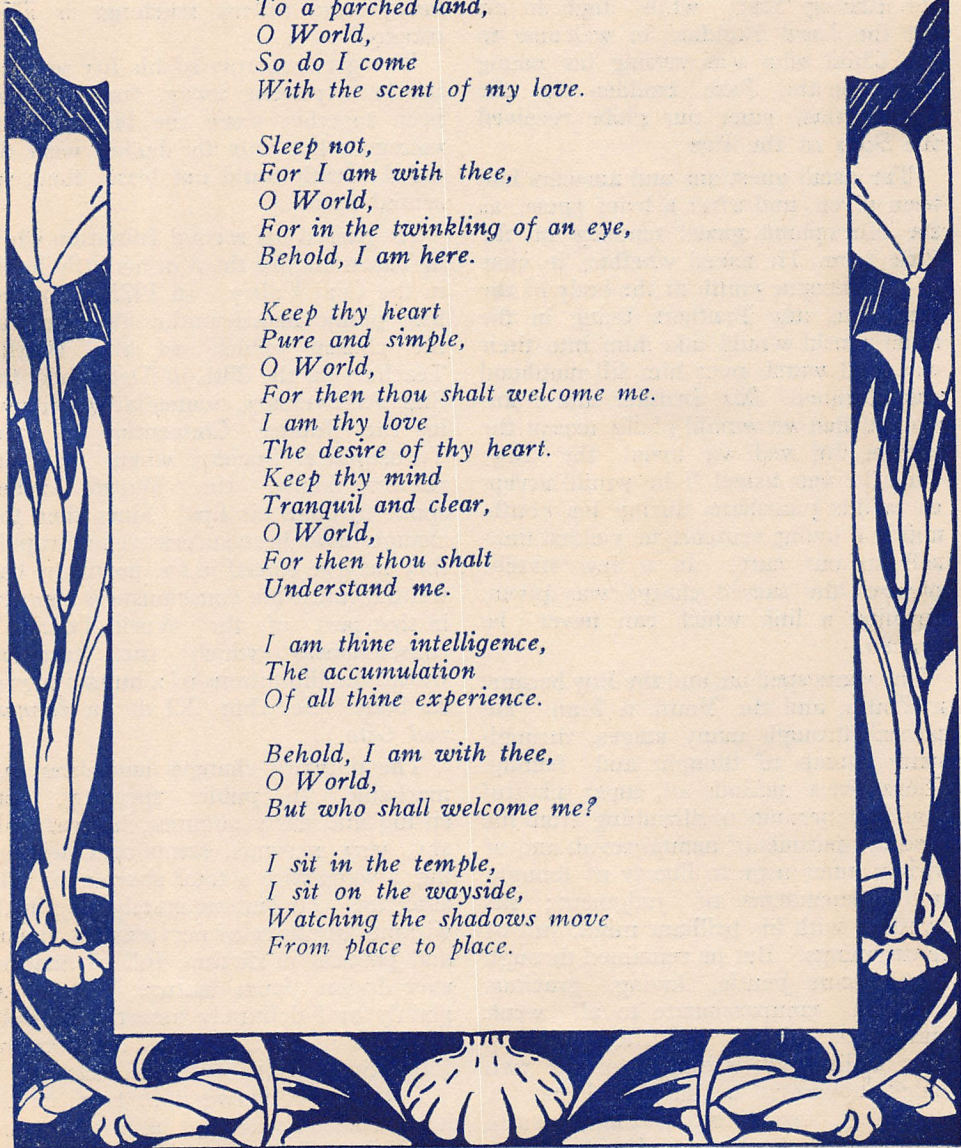 To a parched land,
O World,
So do I come
With the scent of my love.

Sleep not,
For I am with thee,
O World,
For in the twinkling of an eye,
Behold, I am here.

Keep thy heart
Pure and simple,
O World,
For then thou shalt welcome me.
I am thy love
The desire of thy heart.
Keep thy mind
Tranquil and clear,
O World,
For then thou shalt
Understand me.

I am thine intelligence,
The accumulation
Of all thine experience.

Behold, I am with thee,
O World,
But who shall welcome me?

I sit in the temple,
I sit on the wayside,
Watching the shadows move
From place to place.